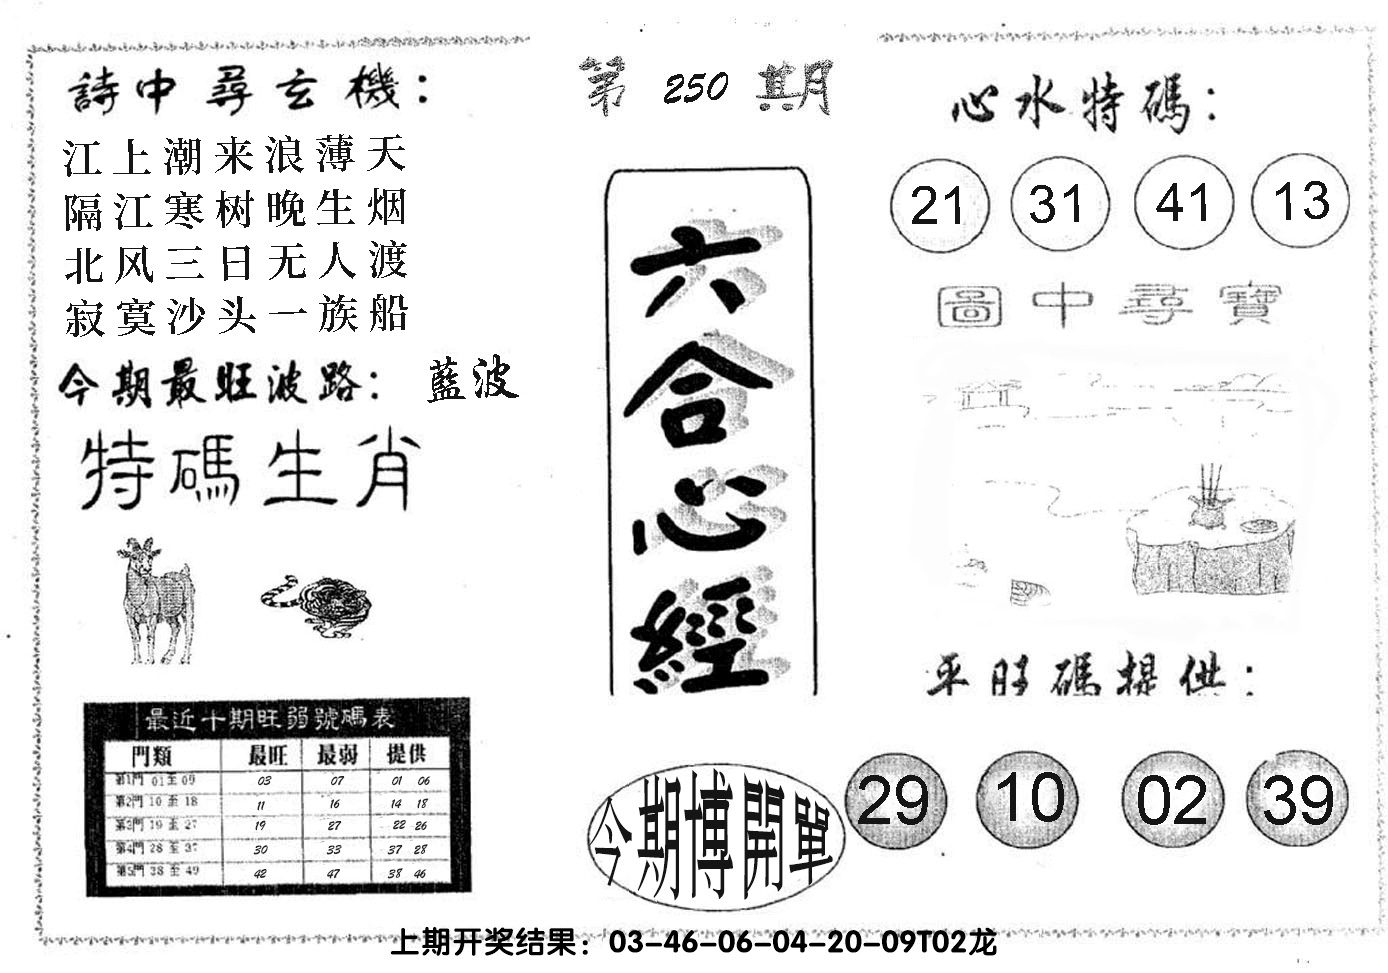 第 250 期
詩中尋玄機：
江上潮来浪薄天
隔江寒树晚生烟
北风三日无人渡
寂寞沙头一族船
今期最旺波路： 藍波
特碼生肖
最近十期旺弱號碼表
門類 最旺 最弱 提供
第1門 01至09 03 07 01 06
第2門 10至18 11 16 14 18
第3門 19至27 19 27 22 26
第4門 28至37 30 33 37 28
第5門 38至49 42 47 38 46
六合心經
今期博開單
心水特碼：
21 31 41 13
圖中尋寶
平旺碼提供：
29 10 02 39
上期开奖结果：03-46-06-04-20-09T02龙